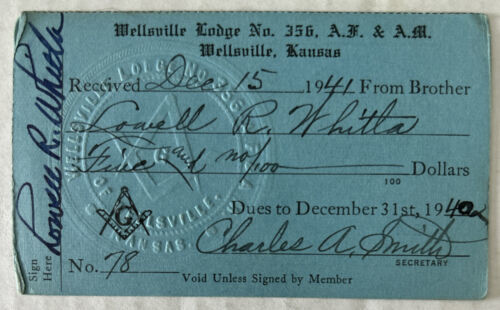 Wellsville Lodge No. 356, A.F. & A.M.
Wellsville, Kansas
Received Dec 15 1941 From Brother
Lowell R. Whitla
Five and no/100 Dollars
100
Dues to December 31st, 194
Charles A. Smith
SECRETARY
No. 78
Void Unless Signed by Member
Sign Here
Lowell R. Whitla
WELLSVILLE LODGE NO. 356
WELLSVILLE,
KANSAS
G